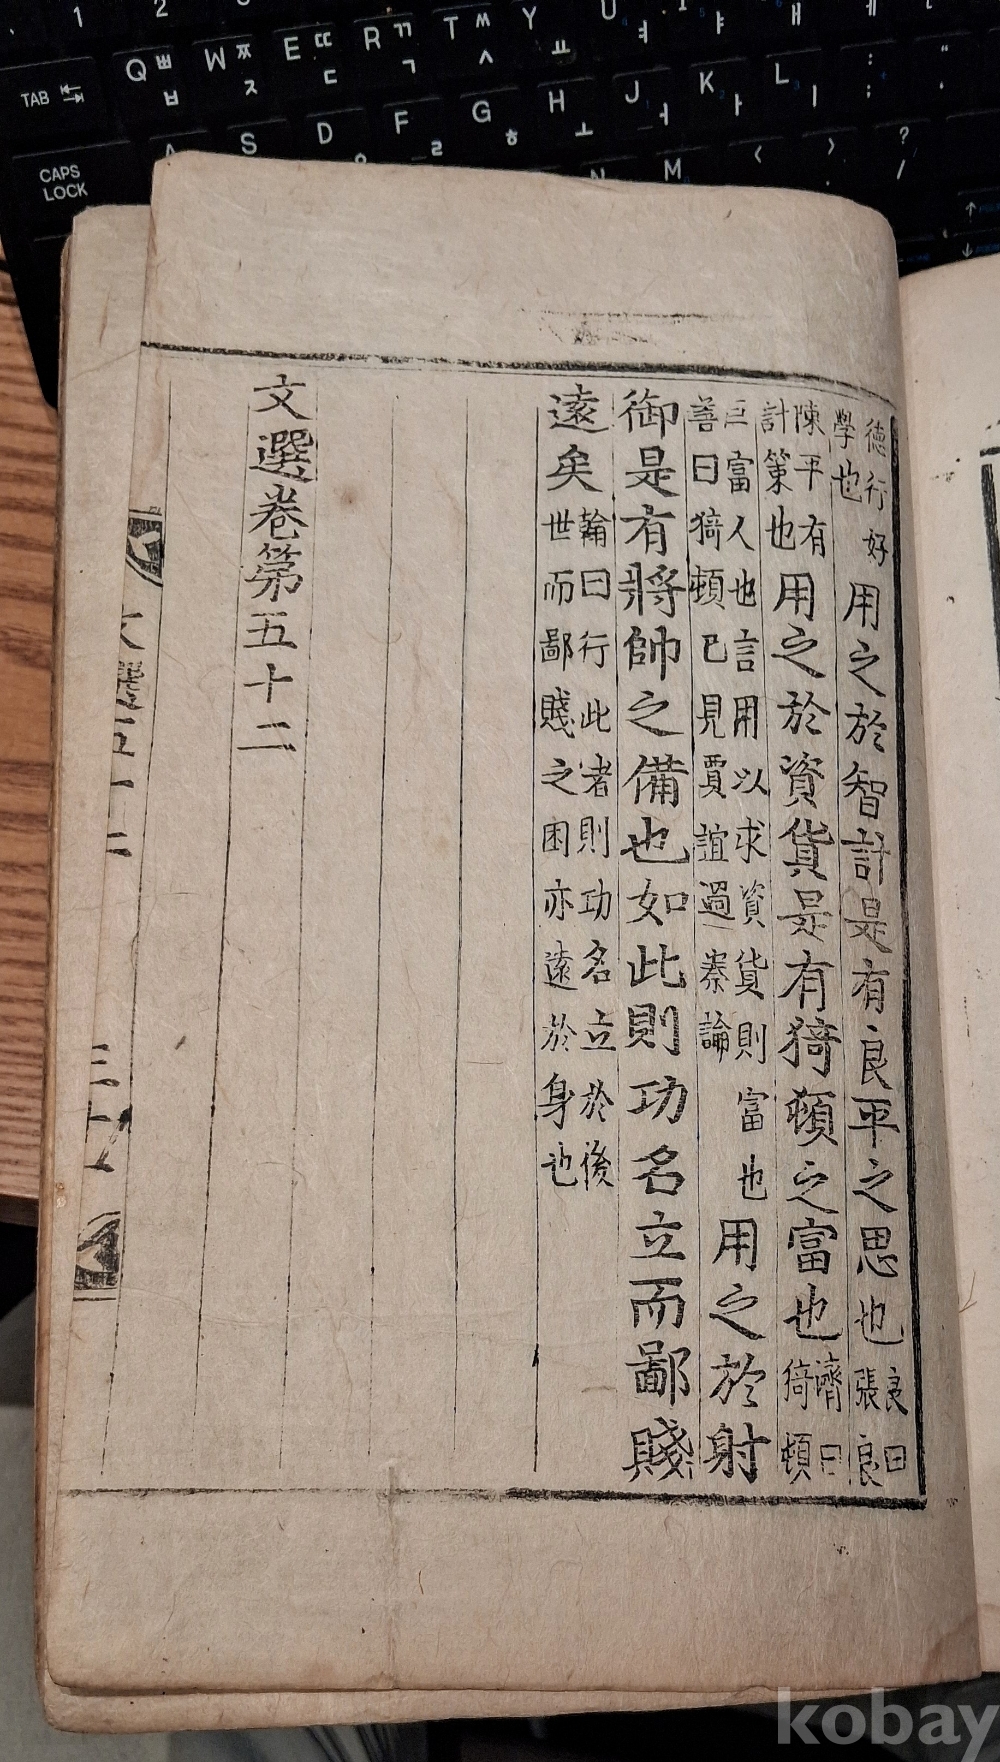 德行好學也用之於智計是有良平之思也良曰張良
陳平有計策也用之於資貨是有猗頓之富也濟曰猗頓
巨富人也言用以求資貨則富也善曰猗頓已見賈誼過秦論用之於射
御是有將帥之備也如此則功名立而鄙賤
遠矣翰曰行此者則功名立於後世而鄙賤之困亦遠於身也
文選卷第五十二
文選五十二
TAB
CAPS LOCK
1 2
Q ㅃ ㅂ W ㅉ ㅈ E ㄸ ㄷ R ㄲ ㄱ T ㅆ ㅅ Y ㅛ U ㅕ ㅑ ㅐ ㅔ
A S D F ㄹ G ㅎ H ㅗ J ㅓ K ㅏ L ㅣ : ;
N M < > ? /
kobay